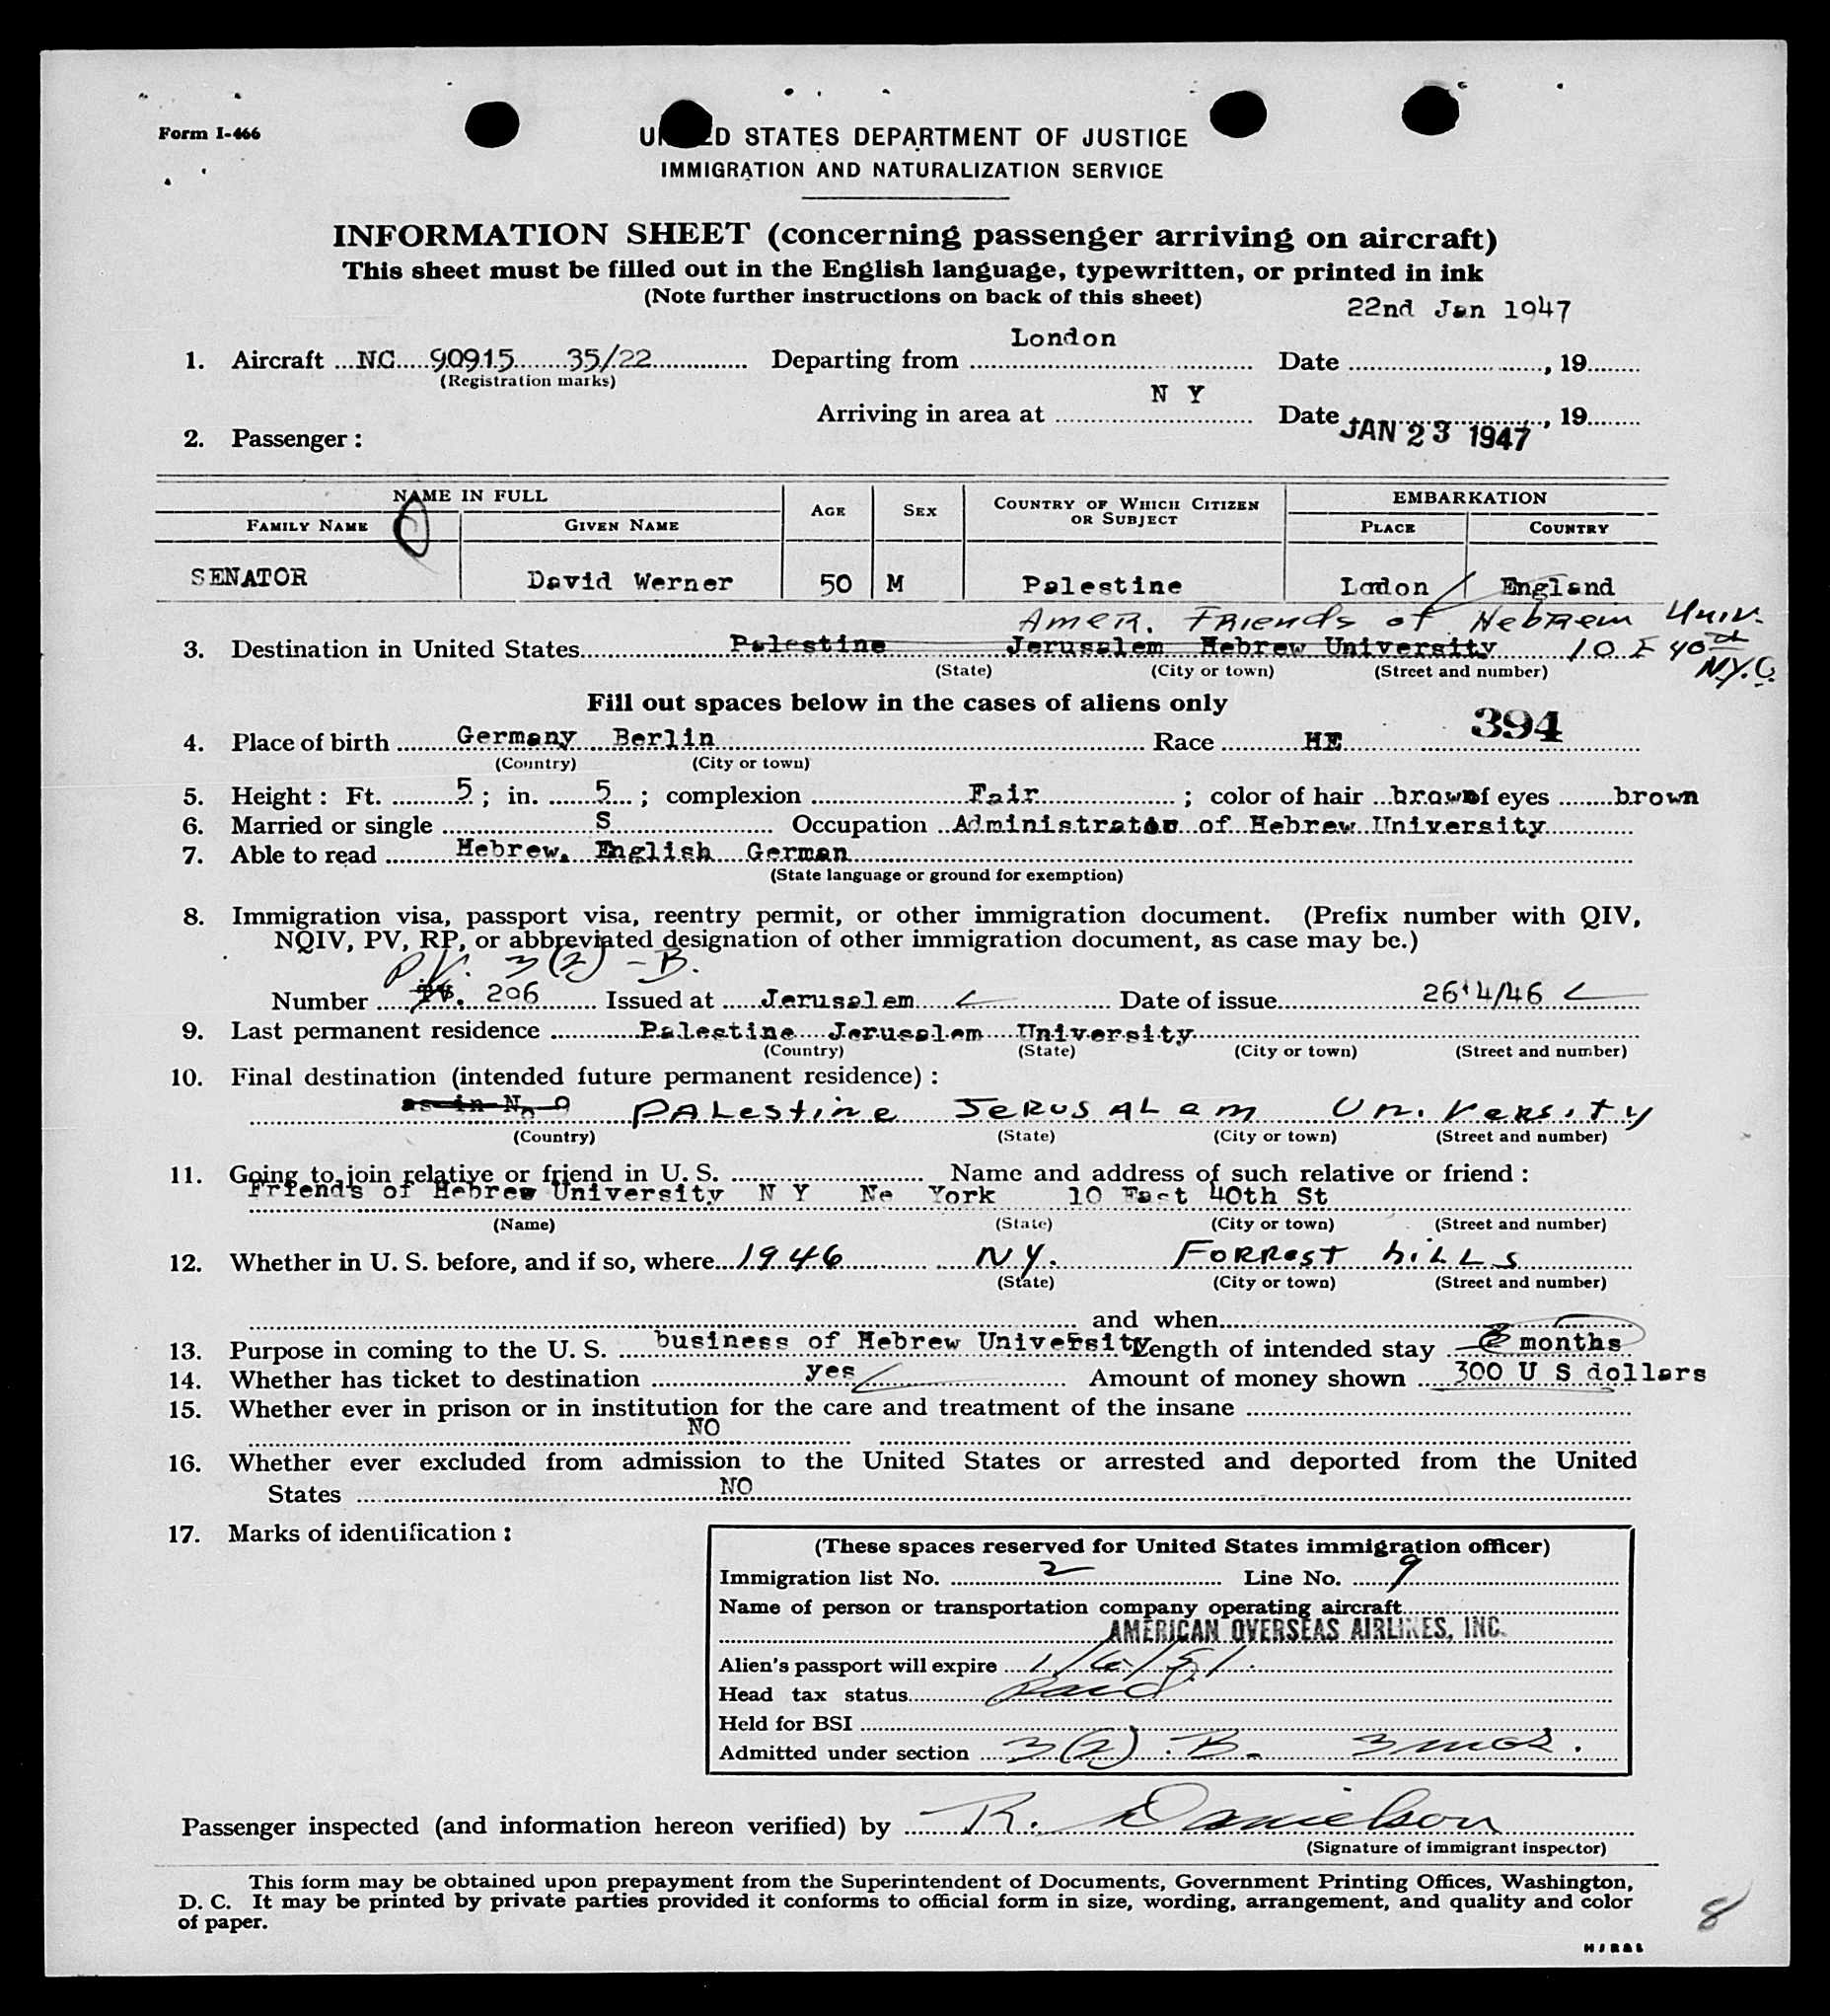 Form I-466
UNITED STATES DEPARTMENT OF JUSTICE
IMMIGRATION AND NATURALIZATION SERVICE
INFORMATION SHEET (concerning passenger arriving on aircraft)
This sheet must be filled out in the English language, typewritten, or printed in ink
(Note further instructions on back of this sheet)
22nd Jan 1947
London
1. Aircraft NC 90915 35/22 Departing from Date , 19
(Registration marks)
N Y
Arriving in area at Date , 19
JAN 23 1947
2. Passenger :
NAME IN FULL AGE SEX COUNTRY OF WHICH CITIZEN OR SUBJECT EMBARKATION
FAMILY NAME GIVEN NAME PLACE COUNTRY
SENATOR David Werner 50 M Palestine Lodon England
Amer. Friends of Hebrew Univ.
3. Destination in United States Palestine Jerusalem Hebrew University 10 E 40th
N.Y.C.
(State) (City or town) (Street and number)
Fill out spaces below in the cases of aliens only
394
4. Place of birth Germany Berlin Race HE
(Country) (City or town)
5. Height : Ft. 5 ; in. 5 ; complexion Fair ; color of hair brown of eyes brown
6. Married or single S Occupation Administrator of Hebrew University
7. Able to read Hebrew, English German
(State language or ground for exemption)
8. Immigration visa, passport visa, reentry permit, or other immigration document. (Prefix number with QIV,
NQIV, PV, RP, or abbreviated designation of other immigration document, as case may be.)
P.V. 3(2) - B.
Number 206 Issued at Jerusalem Date of issue 26'4/46
9. Last permanent residence Palestine Jerusalem University
(Country) (State) (City or town) (Street and number)
10. Final destination (intended future permanent residence) :
as in No 9 Palestine Jerusalem University
(Country) (State) (City or town) (Street and number)
11. Going to join relative or friend in U. S. Name and address of such relative or friend :
Friends of Hebrew University N Y Ne York 10 East 40th St
(Name) (State) (City or town) (Street and number)
12. Whether in U. S. before, and if so, where 1946 N.Y. Forrest hills
(State) (City or town) (Street and number)
and when
13. Purpose in coming to the U. S. business of Hebrew University Length of intended stay months
14. Whether has ticket to destination yes Amount of money shown 300 U S dollars
15. Whether ever in prison or in institution for the care and treatment of the insane
NO
16. Whether ever excluded from admission to the United States or arrested and deported from the United
States NO
17. Marks of identification :
(These spaces reserved for United States immigration officer)
Immigration list No. 2 Line No. 9
Name of person or transportation company operating aircraft
AMERICAN OVERSEAS AIRLINES, INC.
Alien's passport will expire 1/6/51
Head tax status Paid
Held for BSI
Admitted under section 3(2). B. 3 mos.
Passenger inspected (and information hereon verified) by R. Danielson
(Signature of immigrant inspector)
This form may be obtained upon prepayment from the Superintendent of Documents, Government Printing Offices, Washington,
D. C. It may be printed by private parties provided it conforms to official form in size, wording, arrangement, and quality and color
of paper.
8